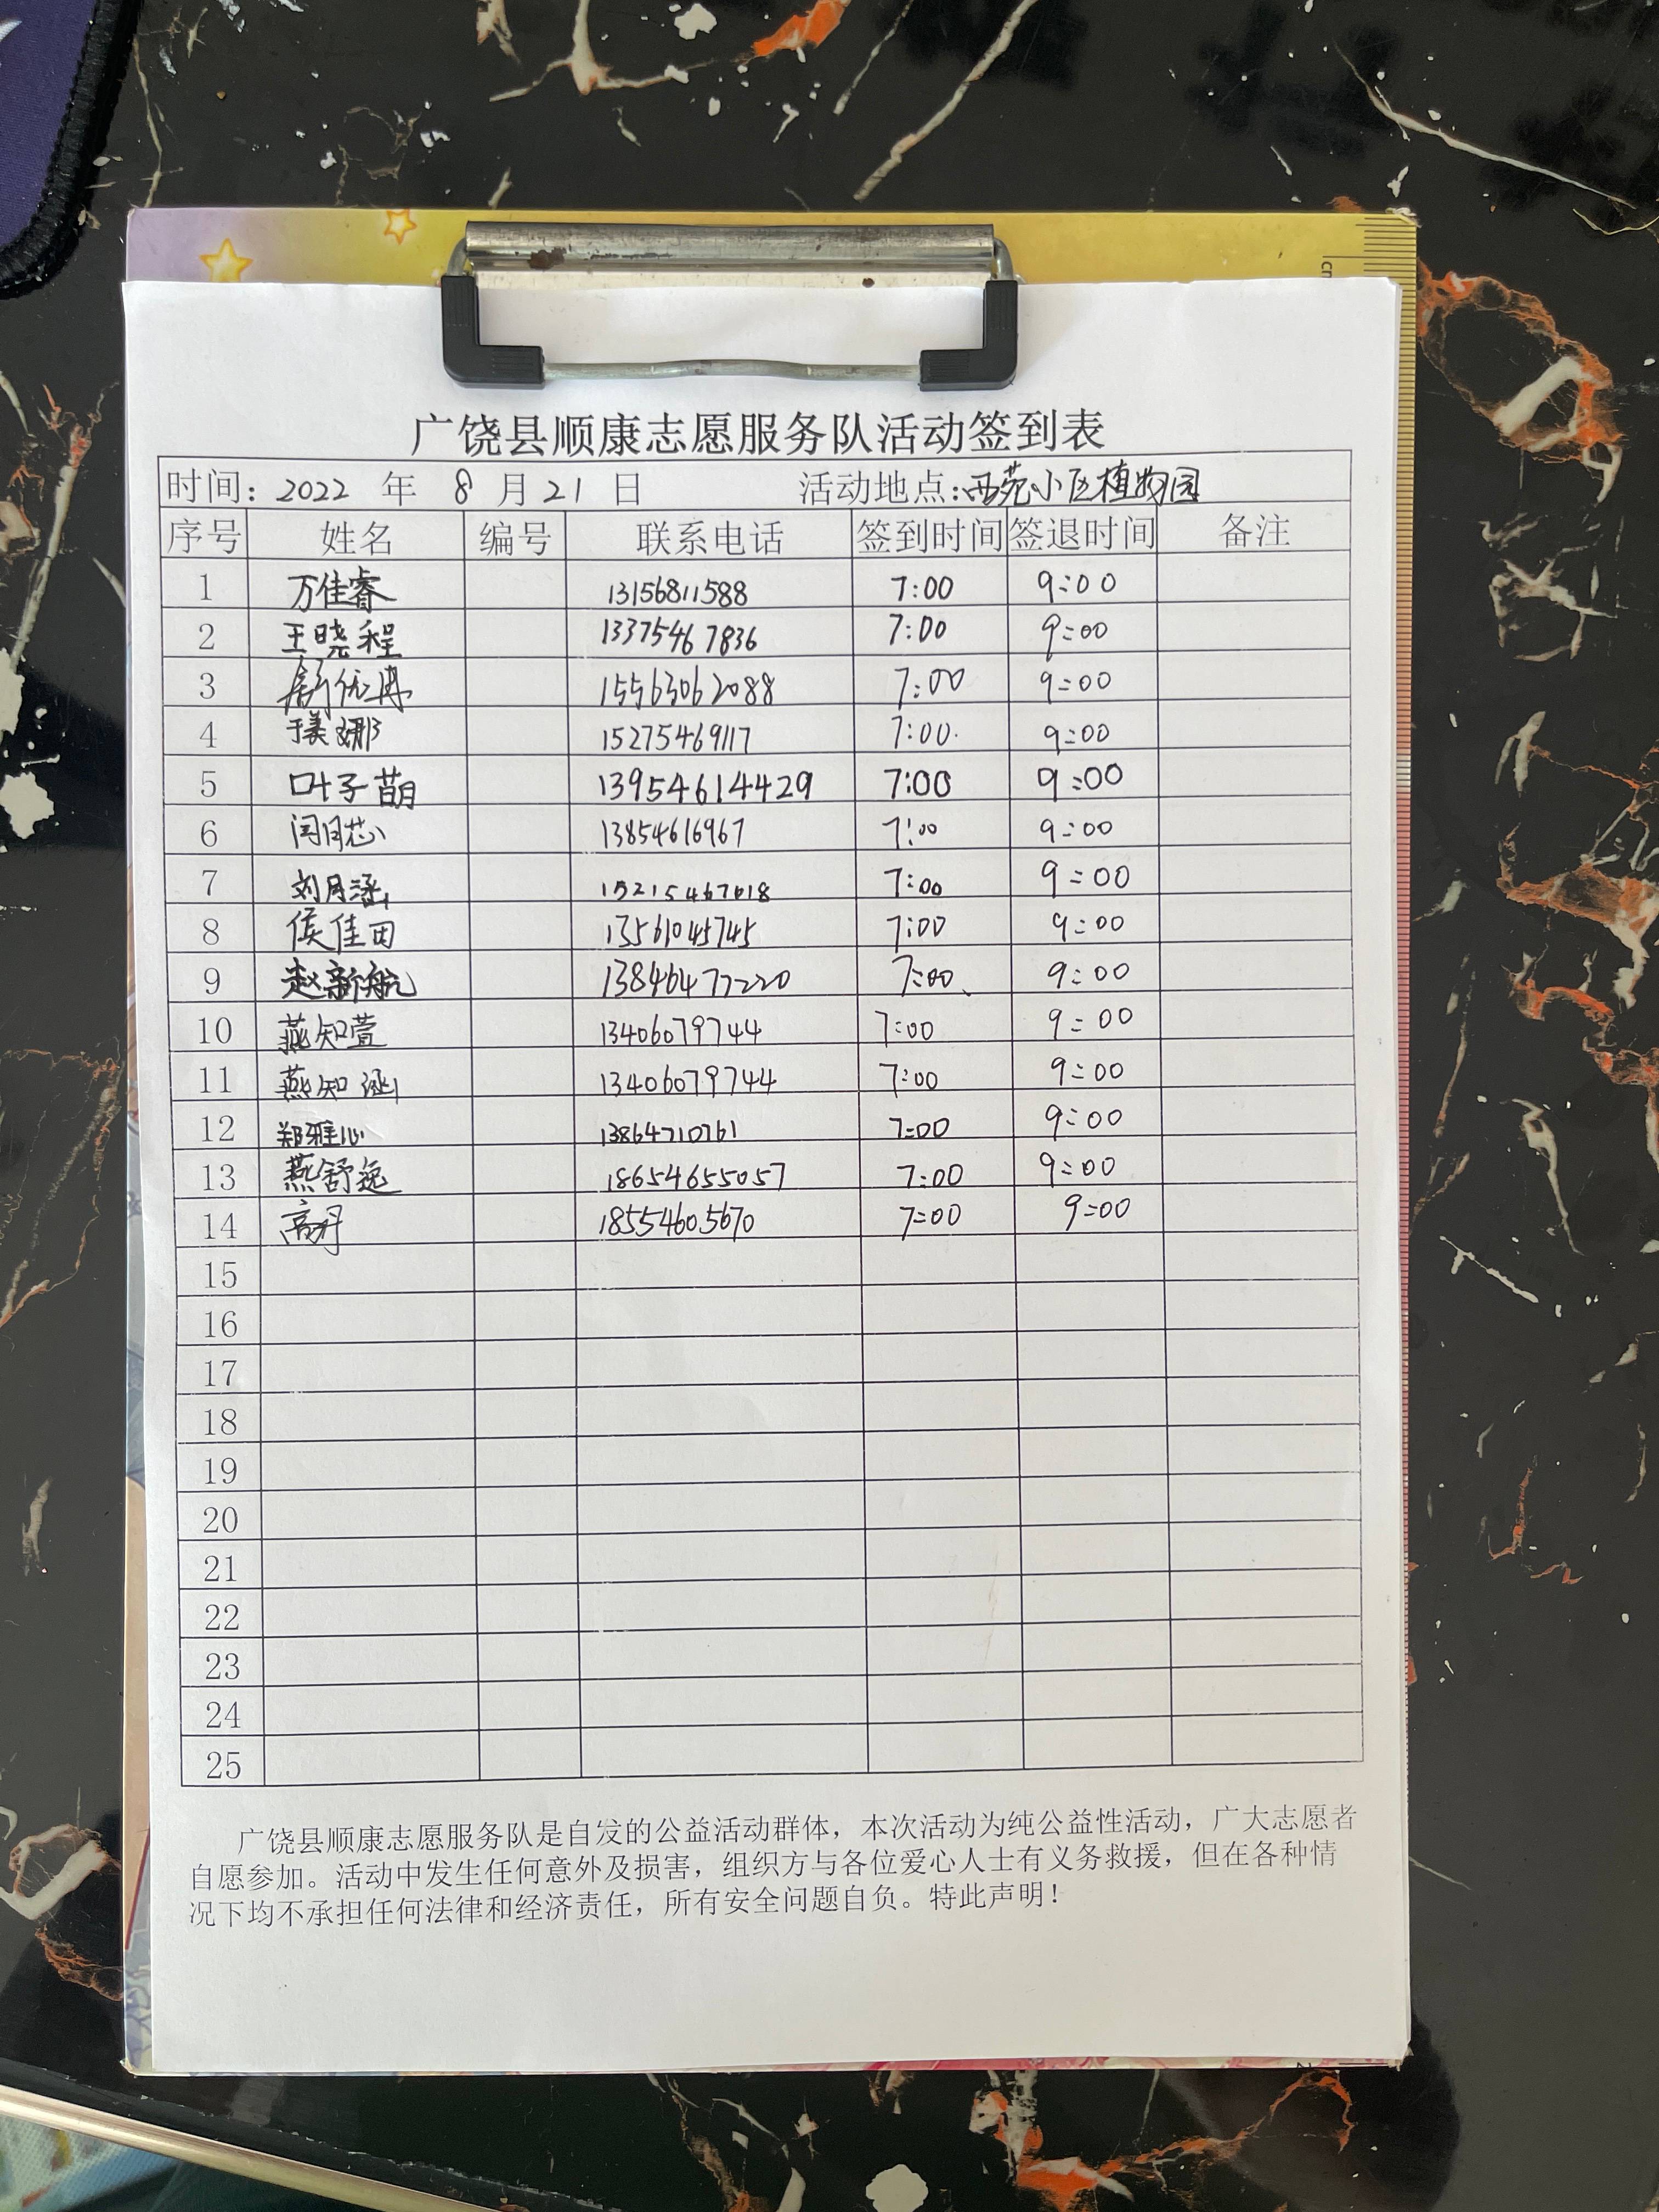 广饶县顺康志愿服务队活动签到表
时间: 2022 年 8 月 21 日 活动地点:西苑小区植物园
序号 姓名 编号 联系电话 签到时间 签退时间 备注
1 万佳睿 13156811588 7:00 9:00
2 王晓程 13375467836 7:00 9:00
3 舒优博 15563062088 7:00 9:00
4 于美娜 15275469117 7:00 9:00
5 叶子萌 13954614429 7:00 9:00
6 闫月芯 13854616967 7:00 9:00
7 刘月涵 15215467018 7:00 9:00
8 侯佳田 13561045745 7:00 9:00
9 赵新航 13846477220 7:00 9:00
10 燕知萱 13406079744 7:00 9:00
11 燕知涵 13406079744 7:00 9:00
12 郑雅心 13864710761 7:00 9:00
13 燕舒逸 18654655057 7:00 9:00
14 高丹 18554605670 7:00 9:00
15
16
17
18
19
20
21
22
23
24
25
广饶县顺康志愿服务队是自发的公益活动群体，本次活动为纯公益性活动，广大志愿者
自愿参加。活动中发生任何意外及损害，组织方与各位爱心人士有义务救援，但在各种情
况下均不承担任何法律和经济责任，所有安全问题自负。特此声明！